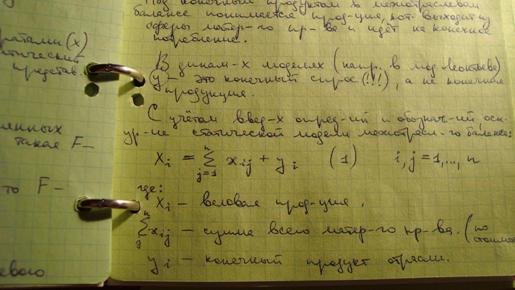 Под конечным продуктом в межотраслевом
балансе понимается прод-ция, кот. выходит из
сферы матер-го пр-ва и идёт на конечное
потребление.
В динам-х моделях (напр. в мод. Леонтьева)
y - это конечный спрос (!!!), а не конечная
продукция.
С учётом введ-х опред-ий и обознач-ий осн.
ур-ие статической модели межотрасл-го баланса:
X_i = \sum_{j=1}^{n} x_{ij} + y_i (1) i, j = 1,..., n
где:
X_i - валовая прод-ция,
\sum_{j}^{n} x_{ij} - сумма всего матер-го пр-ва. (по
y_i - конечный продукт отрасли.
(x)
представ.
такая F-
то F-